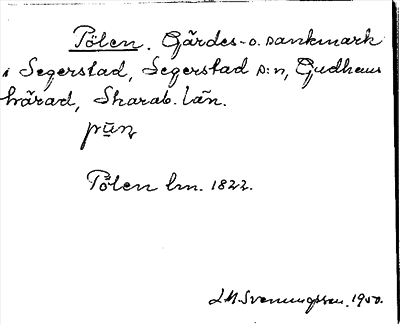 Pölen. Gärdes- o. sankmark
i Segerstad, Segerstad s:n, Gudhems
härad, Skarab. län.
Pölen lm. 1822.
J.M. Svenungsson. 1950.